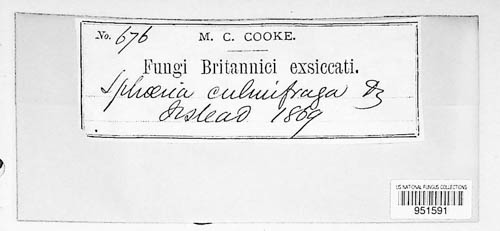 No. 676
M. C. COOKE.
Fungi Britannici exsiccati.
Sphæria culmifraga Fr
Irstead 1869
US NATIONAL FUNGUS COLLECTIONS
951591